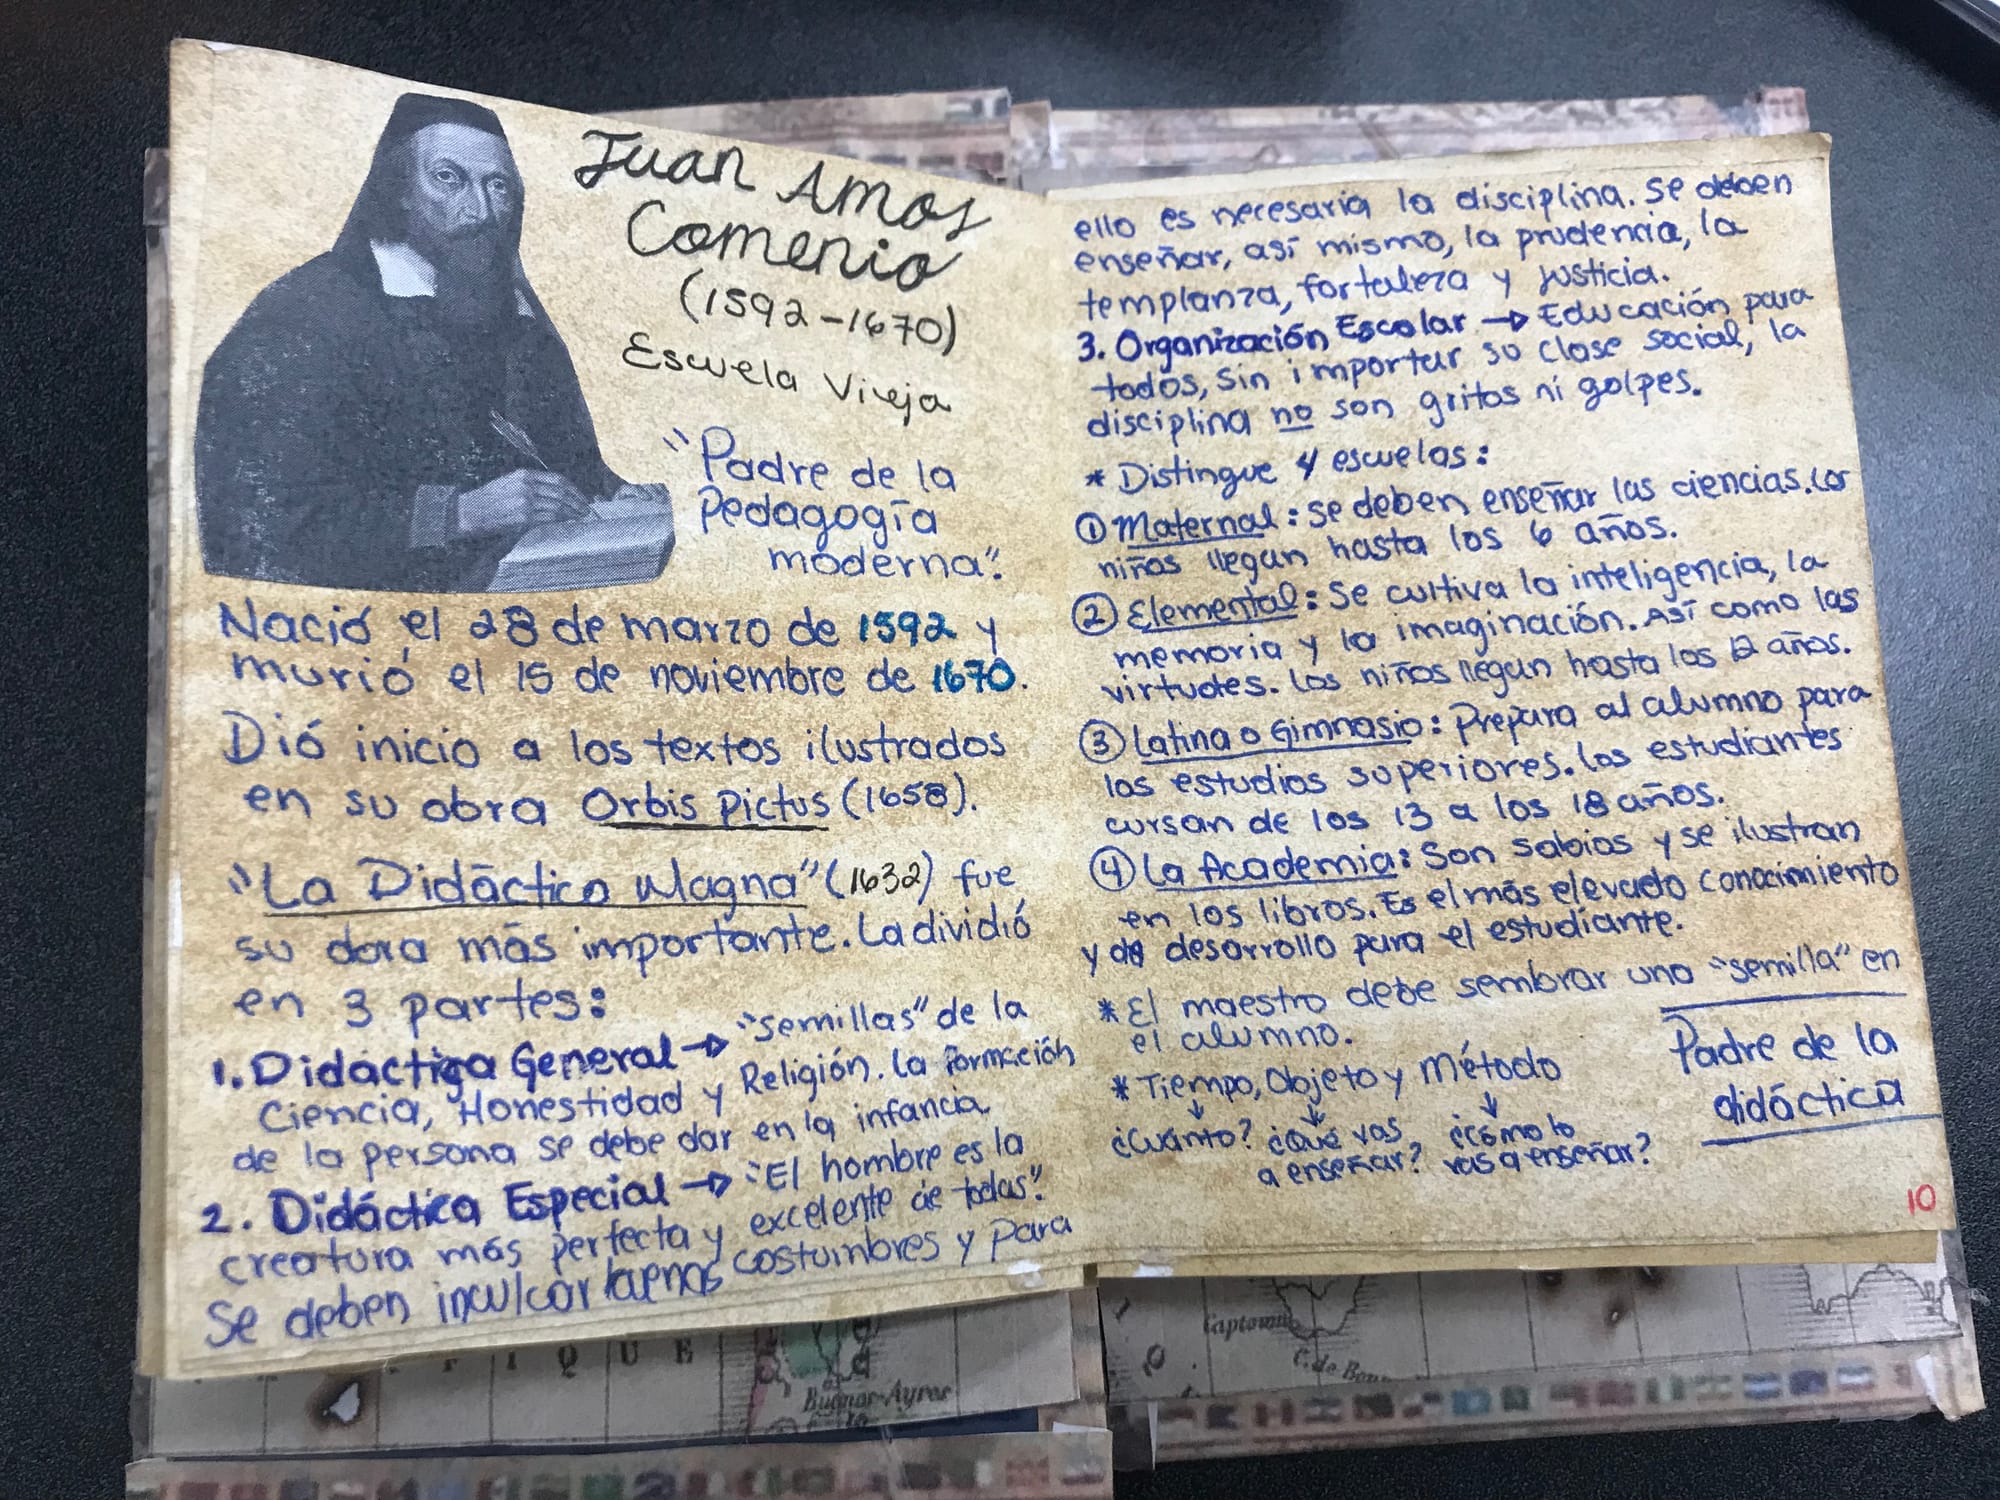 Juan Amos
Comenio
(1592-1670)
Escuela Vieja
"Padre de la
Pedagogía
moderna".
Nació el 28 de marzo de 1592 y
murió el 15 de noviembre de 1670.
Dió inicio a los textos ilustrados
en su obra Orbis Pictus (1658).
"La Didáctica Magna" (1632) fue
su dora más importante. La dividió
en 3 partes:
1. Didáctica General → "semillas" de la
Ciencia, Honestidad y Religión. La formación
de la persona se debe dar en la infancia
2. Didáctica Especial → "El hombre es la
creatura más perfecta y excelente de todas".
Se deben inculcar buenas costumbres y para
ello es necesaria la disciplina. Se deben
enseñar, así mismo, la prudencia, la
templanza, fortaleza y justicia.
3. Organización Escolar → Educación para
todos, sin importar su clase social, la
disciplina no son gritos ni golpes.
* Distingue 4 escuelas:
① Maternal: se deben enseñar las ciencias. Los
niños llegan hasta los 6 años.
② Elemental: Se cultiva la inteligencia, la
memoria y la imaginación. Así como las
virtudes. Los niños llegan hasta los 12 años.
③ Latina o Gimnasio: Prepara al alumno para
los estudios superiores. Los estudiantes
cursan de los 13 a los 18 años.
④ La Academia: Son sabios y se ilustran
en los libros. Es el más elevado conocimiento
y de desarrollo para el estudiante.
* El maestro debe sembrar una "semilla" en
el alumno.
* Tiempo, Objeto y Método
¿Cuánto? ¿Qué vas ¿Cómo lo
a enseñar? vas a enseñar?
Padre de la
didáctica
10
I Q U E
Buenos-Ayres
Captown
C. de Bon